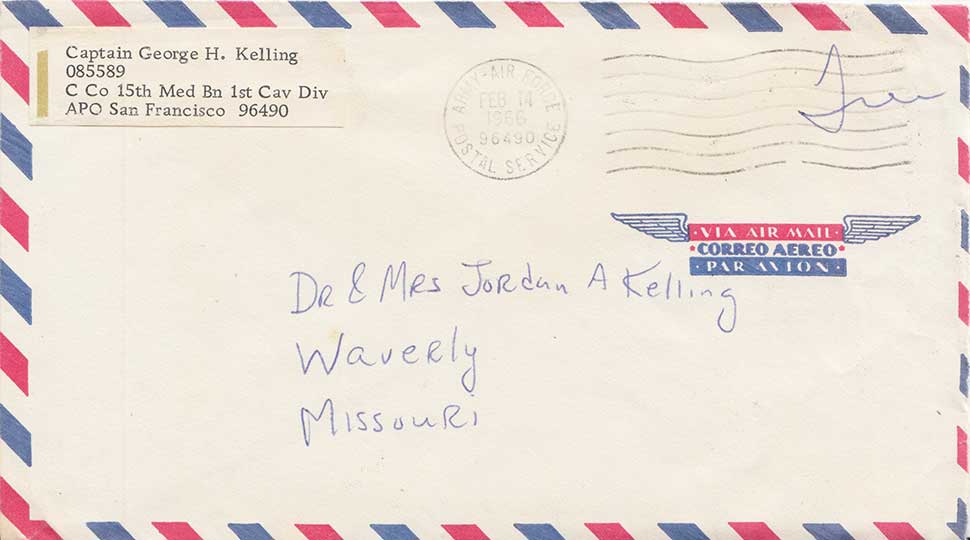 Captain George H. Kelling
085589
C Co 15th Med Bn 1st Cav Div
APO San Francisco 96490
ARMY-AIR FORCE
FEB 14
1966
96490
POSTAL SERVICE
Free
·VIA AIR MAIL·
CORREO AEREO
·PAR AVION·
DR & MRS Jordan A Kelling
Waverly
Missouri